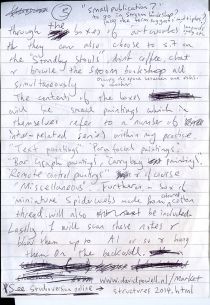 (2) "Small publication?"
to go in Spoon bookshop?
through the boxes of artworks
the they can also choose to sit on
the "Standby Stools", drink coffee, chat
or browse the spoon bookshop all
simultaneously.
The contents of the boxes
will be small paintings which in
themselves refer to a number of
inter-related series within my practice
"Text paintings" "Parafacial paintings",
"Bar Graph paintings", "Carrybag paintings",
"Remote control paintings" & of course
"Miscellaneous". Further a box of
miniature spiderwebs made from cotton
thread will also be included
Lastly, I will scan these notes &
blow them up to A1 or so & hang
them on the back wall.
See Studio version online → www.davidpowell.nl/market
structures 2014.html